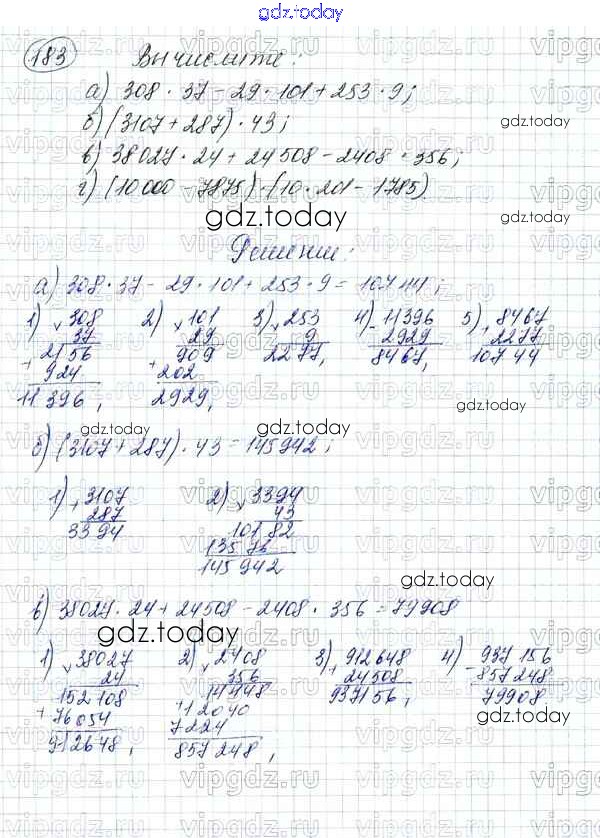 gdz.today
183 Вычислите:
а) 308 · 37 - 29 · 101 + 253 · 9;
б) (3107 + 287) · 43;
gdz.today
в) 38027 · 24 + 24508 - 2408 · 356;
г) (10 000 - 7875) · (10 · 201 - 1785).
gdz.today
Решение:
а) 308 · 37 - 29 · 101 + 253 · 9 = 10744;
1) × 308 2) × 101 3) × 253 4) - 11396 5) + 8467
37 29 9 2929 2277
2156 909 2277, 8467, 10744
+ 924 + 202
11396, 2929,
gdz.today
gdz.today
б) (3107 + 287) · 43 = 145942;
1) + 3107 2) × 3394
287 43
3394 10182
13576
145942
gdz.today
в) 38027 · 24 + 24508 - 2408 · 356 = 79908
gdz.today
1) × 38027 2) × 2408 3) + 912648 4) - 937156
24 356 24508 857248
152108 14448 937156, 79908
+ 76054 + 12040
912648, 7224
857248,
gdz.today